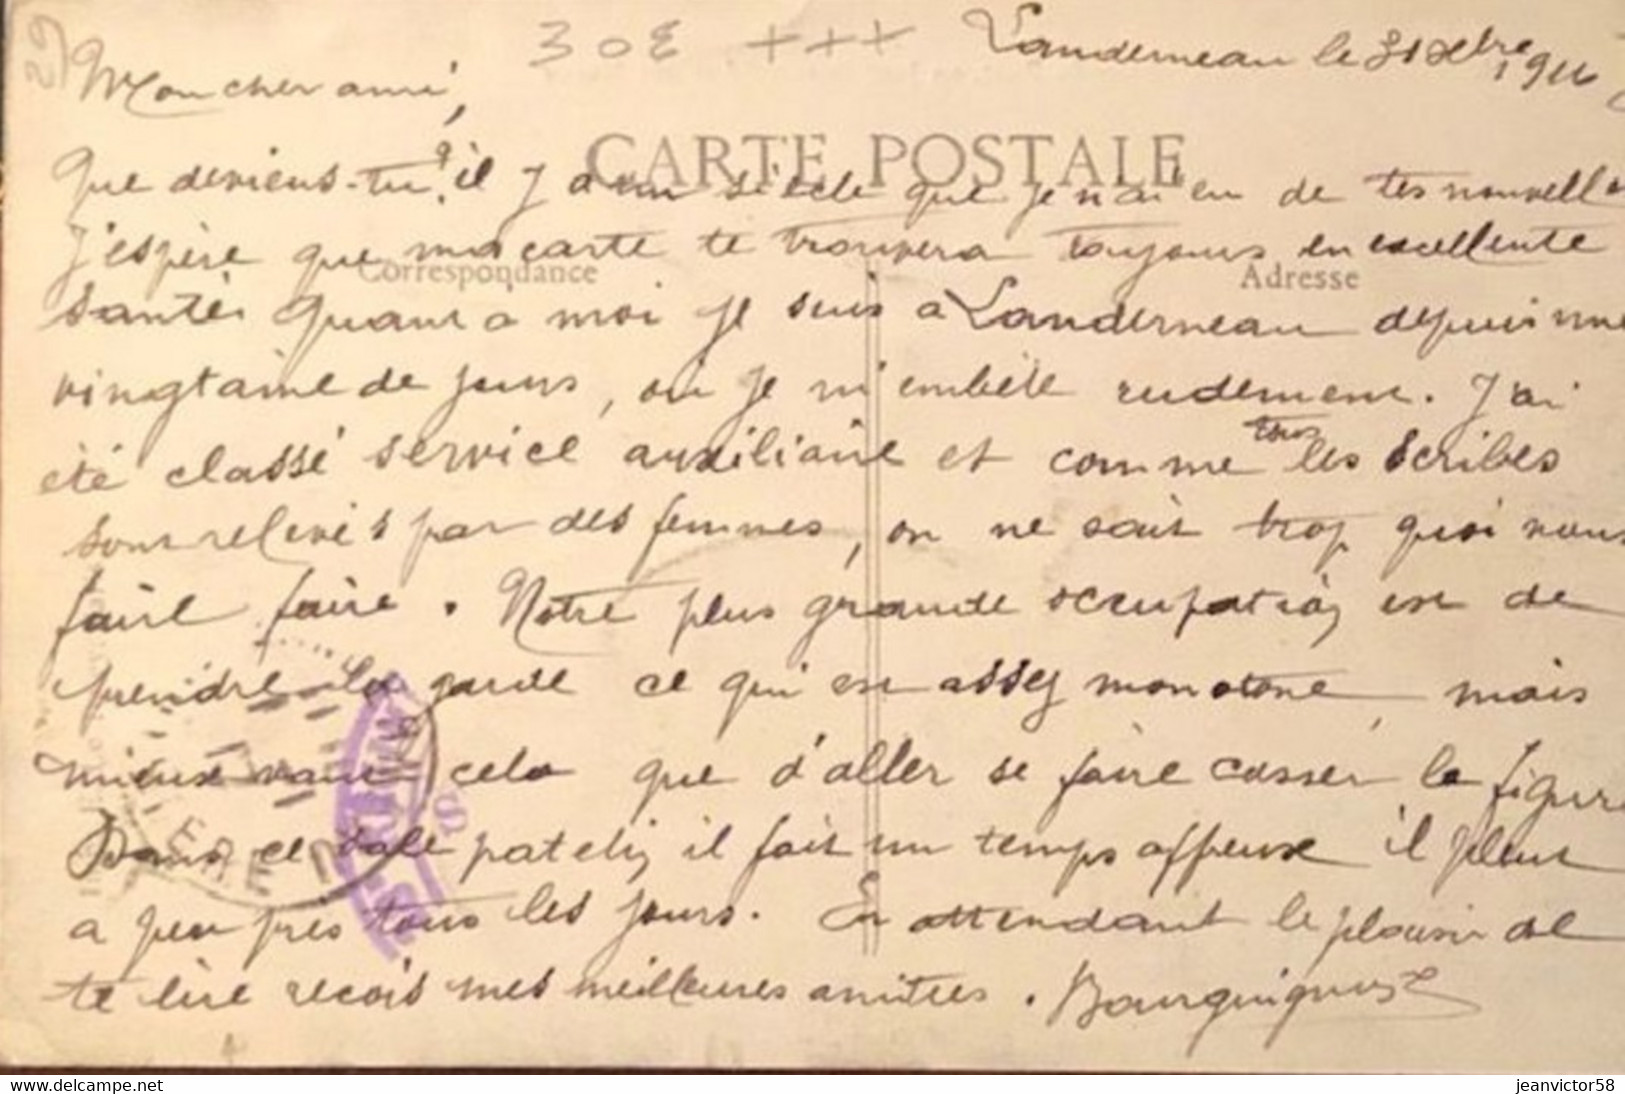 29
30E +++ Landerneau le 31 Xbre 1916
Mon cher ami,
CARTE POSTALE
Que deviens-tu? il y a un siècle que je n'ai eu de tes nouvelles
J'espère que ma carte te trouvera toujours en excellente
Correspondance Adresse
santé. Quant a moi je suis a Landerneau depuis une
vingtaine de jours, ou je m'embête rudement. J'ai
été classé service auxiliaire et comme tous les scribes
sont relevés par des femmes, on ne sait trop quoi nous
faire faire. Notre plus grande occupation est de
prendre la garde ce qui est assez monotone, mais
mieux vaut cela que d'aller se faire casser la figure
Dans ce sale patelin il fait un temps affreux il pleut
a peu près tous les jours. En attendant le plaisir de
te lire reçois mes meilleures amitiés. Bourguignon
www.delcampe.net jeanvictor58